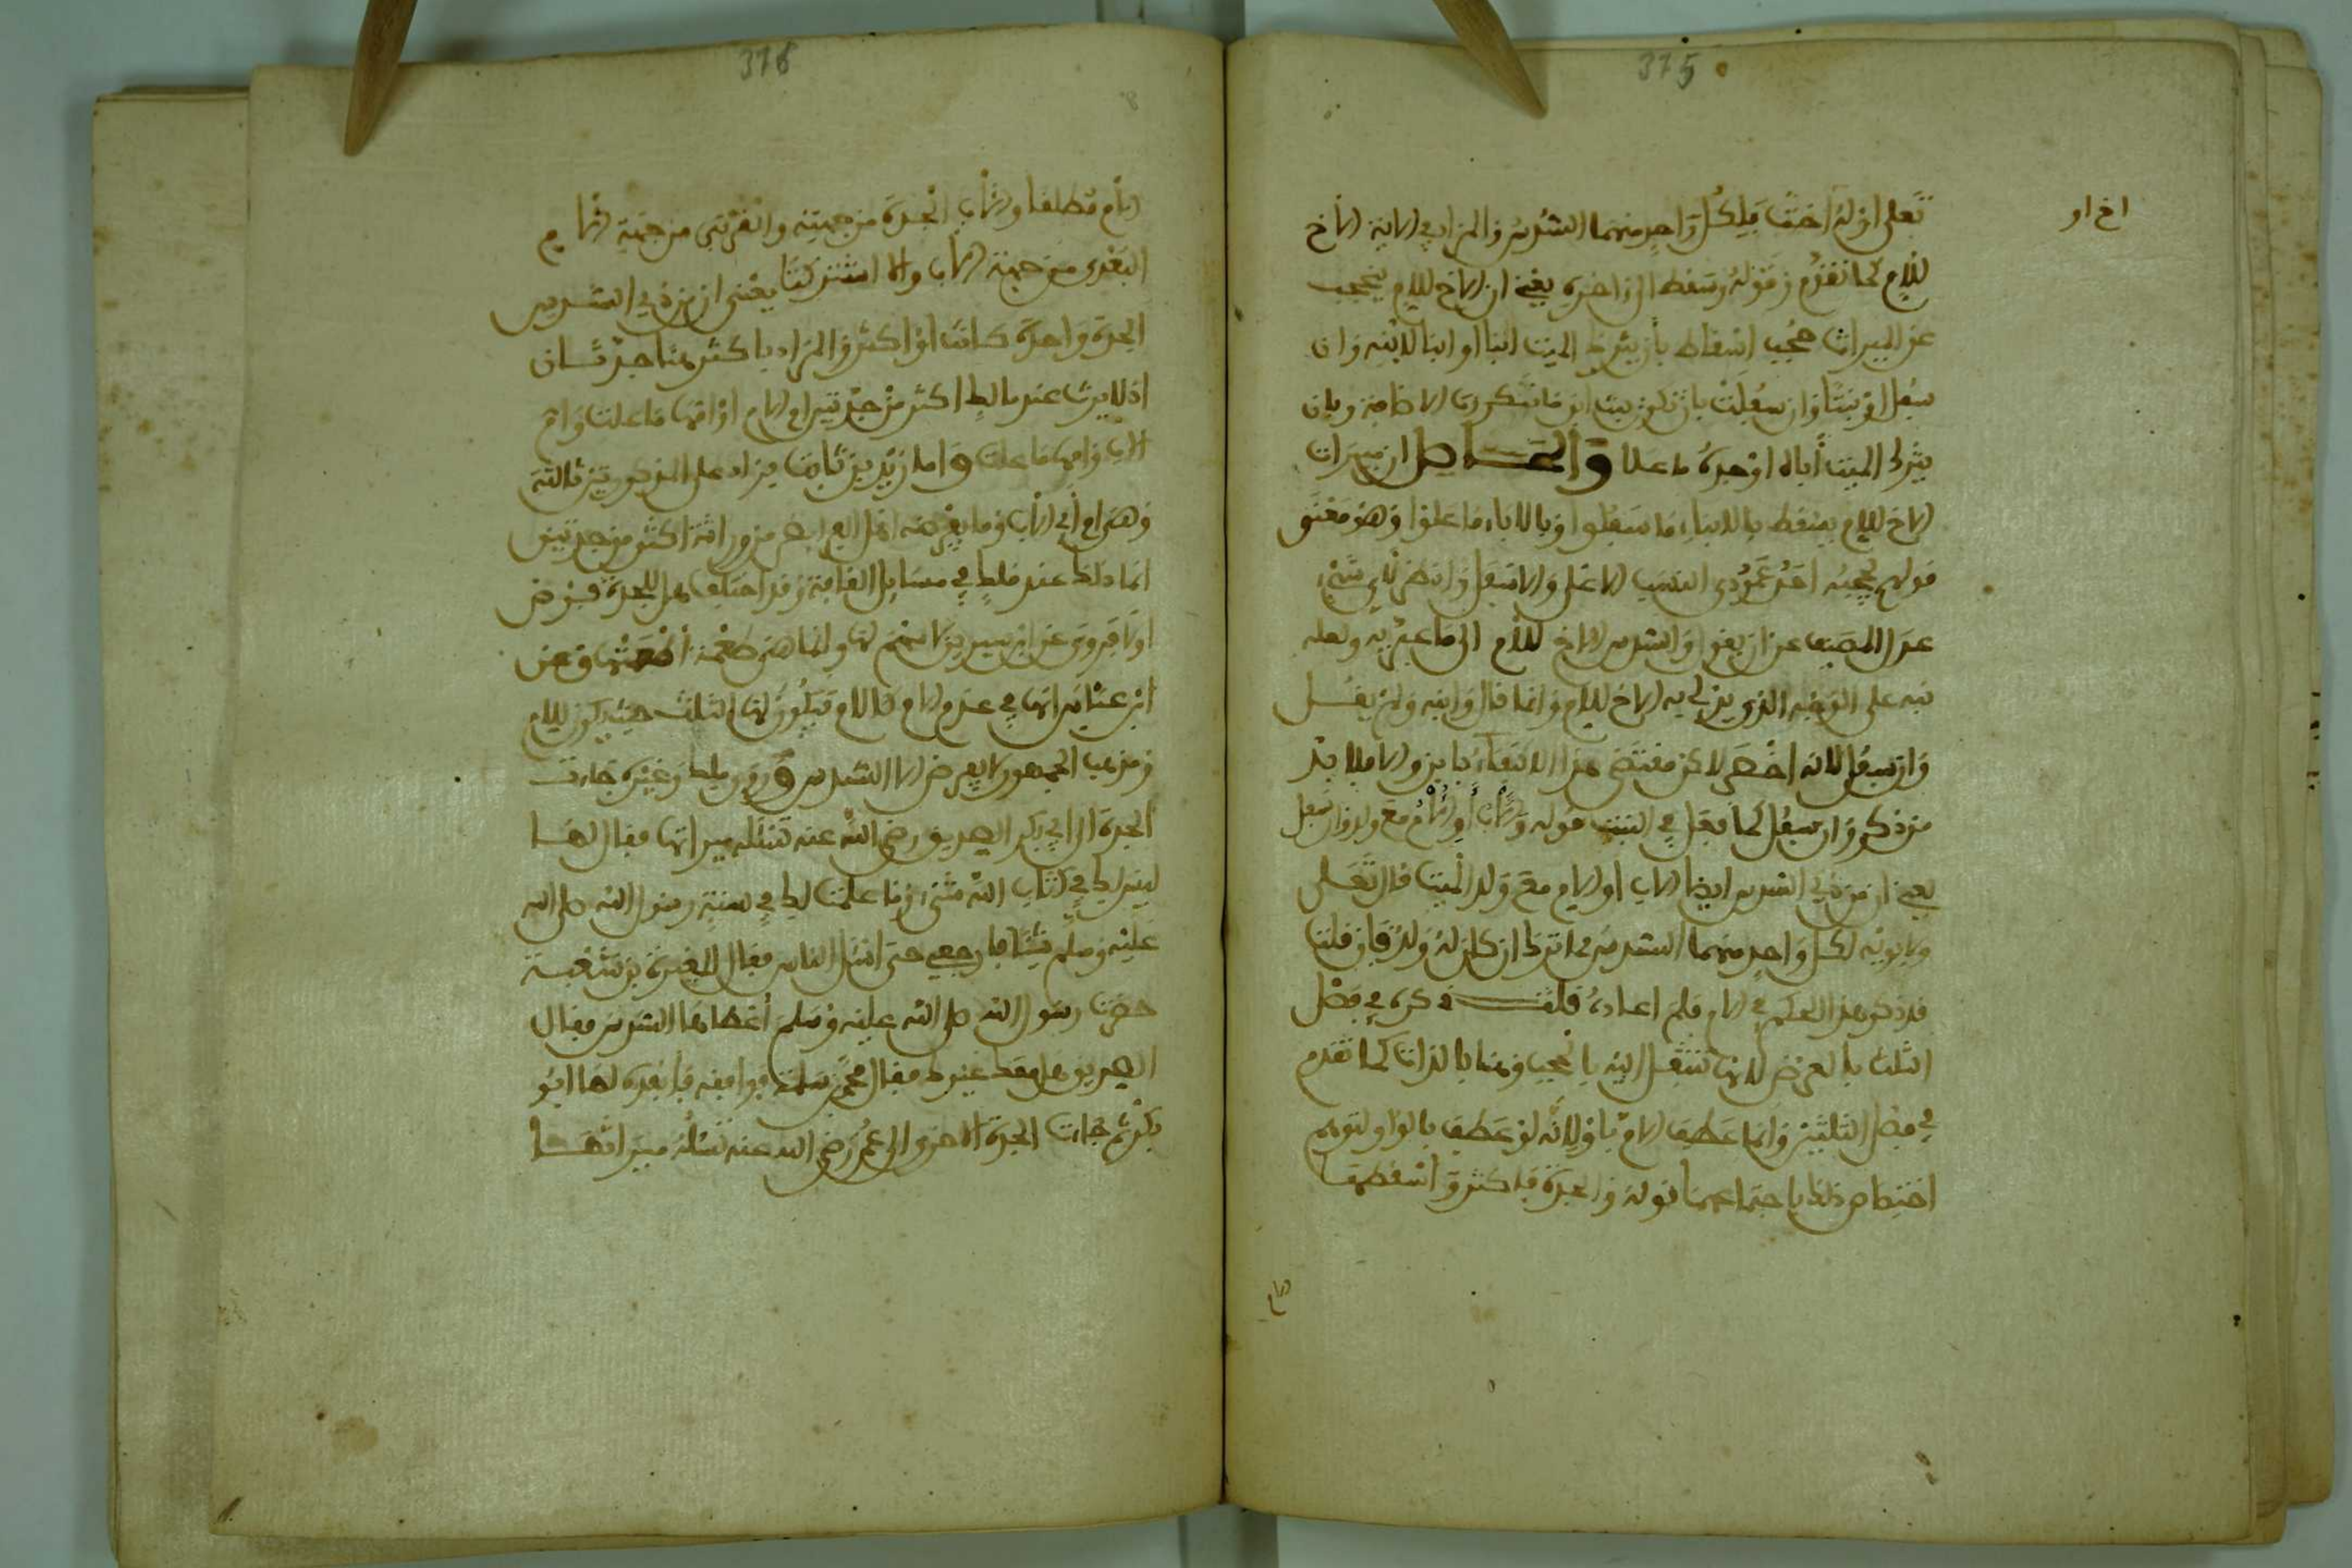 375
اخ او
تعلى اوله اخت فلكل واحد منهما السدس والمراد في الاية الاخ
للام كما تقدم وقوله وسقط الى اخره يعني ان الاخ للام يحجب
عن الميراث حجب اسقاط بان يترك الميت ابنا او ابنا لابنه وان
سفل او بنتا وان سفلت بان تكون بنت ابن وبان
يترك الميت أباه او جده ما علا والحاصل ان ميراث
الاخ للام يسقط بالابناء ما سفلوا وبالاباء ما علوا وهو معنى
قولهم يحجبه احد عمودي النسب الاعلى والاسفل وانظر لاي شيء
عدل المصنف عن ان يقول والسدس للاخ للام الى ما عبر به ولعله
نبه على الوجه الذي يدلي به الاخ للام وانما قال وابنه ولم يقل
وان سفل لانه اخصر لاكن مقتضى هذا الاكتفاء بابن والا فلا بد
من ذكر وان سفل كما فعل في البنت قوله والاب أو الام مع ولد وان سفل
يعني ان من ذوي السدس ايضا الاب او الام مع ولد الميت قال تعلى
ولابويه لكل واحد منهما السدس مما ترك ان كان له ولد فان قلت
قد ذكر هذا الحكم في الام فلم اعاده قلت ذكره في فصل
الثلث بالعرض لانها تنتقل اليه بالحجب وهنا بالذات كما تقدم
في فصل الثلثين وانما عطف الام باو لانه لو عطف بالواو لتوهم
اختصاص ذلك باجتماعهما قوله والجدة فاكثر واسقطها
الام
376
الام مطلقا والاب الجدة من جهته والقربى من جهة الام
البعدى من جهة الاب والا اشتركتا يعني ان من ذوي السدس
الجدة واحدة كانت او اكثر والمراد باكثر هنا جدتان
اذ لا يرث عند مالك اكثر من جدتين ام الام او امها ما علت وام
الاب وامها ما علت واما زيد بن ثابت فيزاد على المذكورتين ثالثة
وهي ام أبي الاب وما يفرضه اهل الفرائض من وراثة اكثر من جدتين
انما ذلك عند ملك في مسايل العامة وقد اختلف هل للجدة فرض
اولا فروي عن ابن سيرين لا سهم لها وانما هي طعمة أطعمتها وعن
ابن عباس انها في عدم الام كالام فيكون لها الثلث حيث يكون للام
ومذهب الجمهور لا يفرض لها الا السدس وروى ملك وغيره جاءت
الجدة الى ابي بكر الصديق رضي الله عنه تسئله ميراثها فقال لها
ليس لك في كتاب الله شيء وما علمت لك في سنة رسول الله صلى الله
عليه وسلم شيئا فارجعي حتى اسئل الناس فقال المغيرة بن شعبة
حضرت رسول الله صلى الله عليه وسلم أعطاها السدس فقال
الصديق هل معك غيرك فقال محمد بن مسلمة فوافقه فانفذه لها ابو
بكر ثم جاءت الجدة الاخرى الى عمر رضي الله عنه تسئله ميراثها